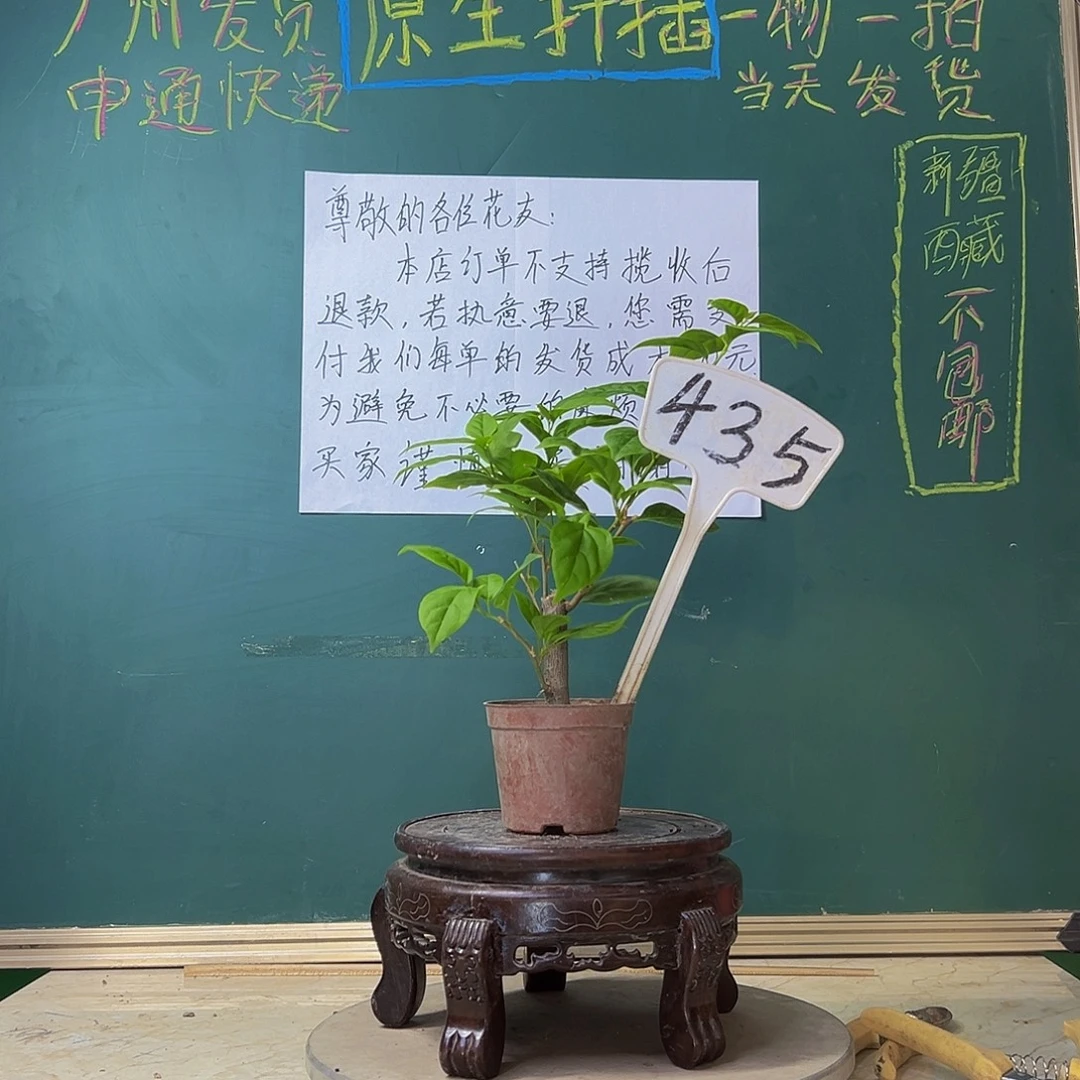 广州发货
原生扦插
一物一拍
申通快递
当天发货
新疆
西藏
不包邮
尊敬的各位花友：
本店订单不支持揽收后
退款，若执意要退，您需支
付我们每单的发货成本 元
为避免不必要的麻烦
买家谨慎
435